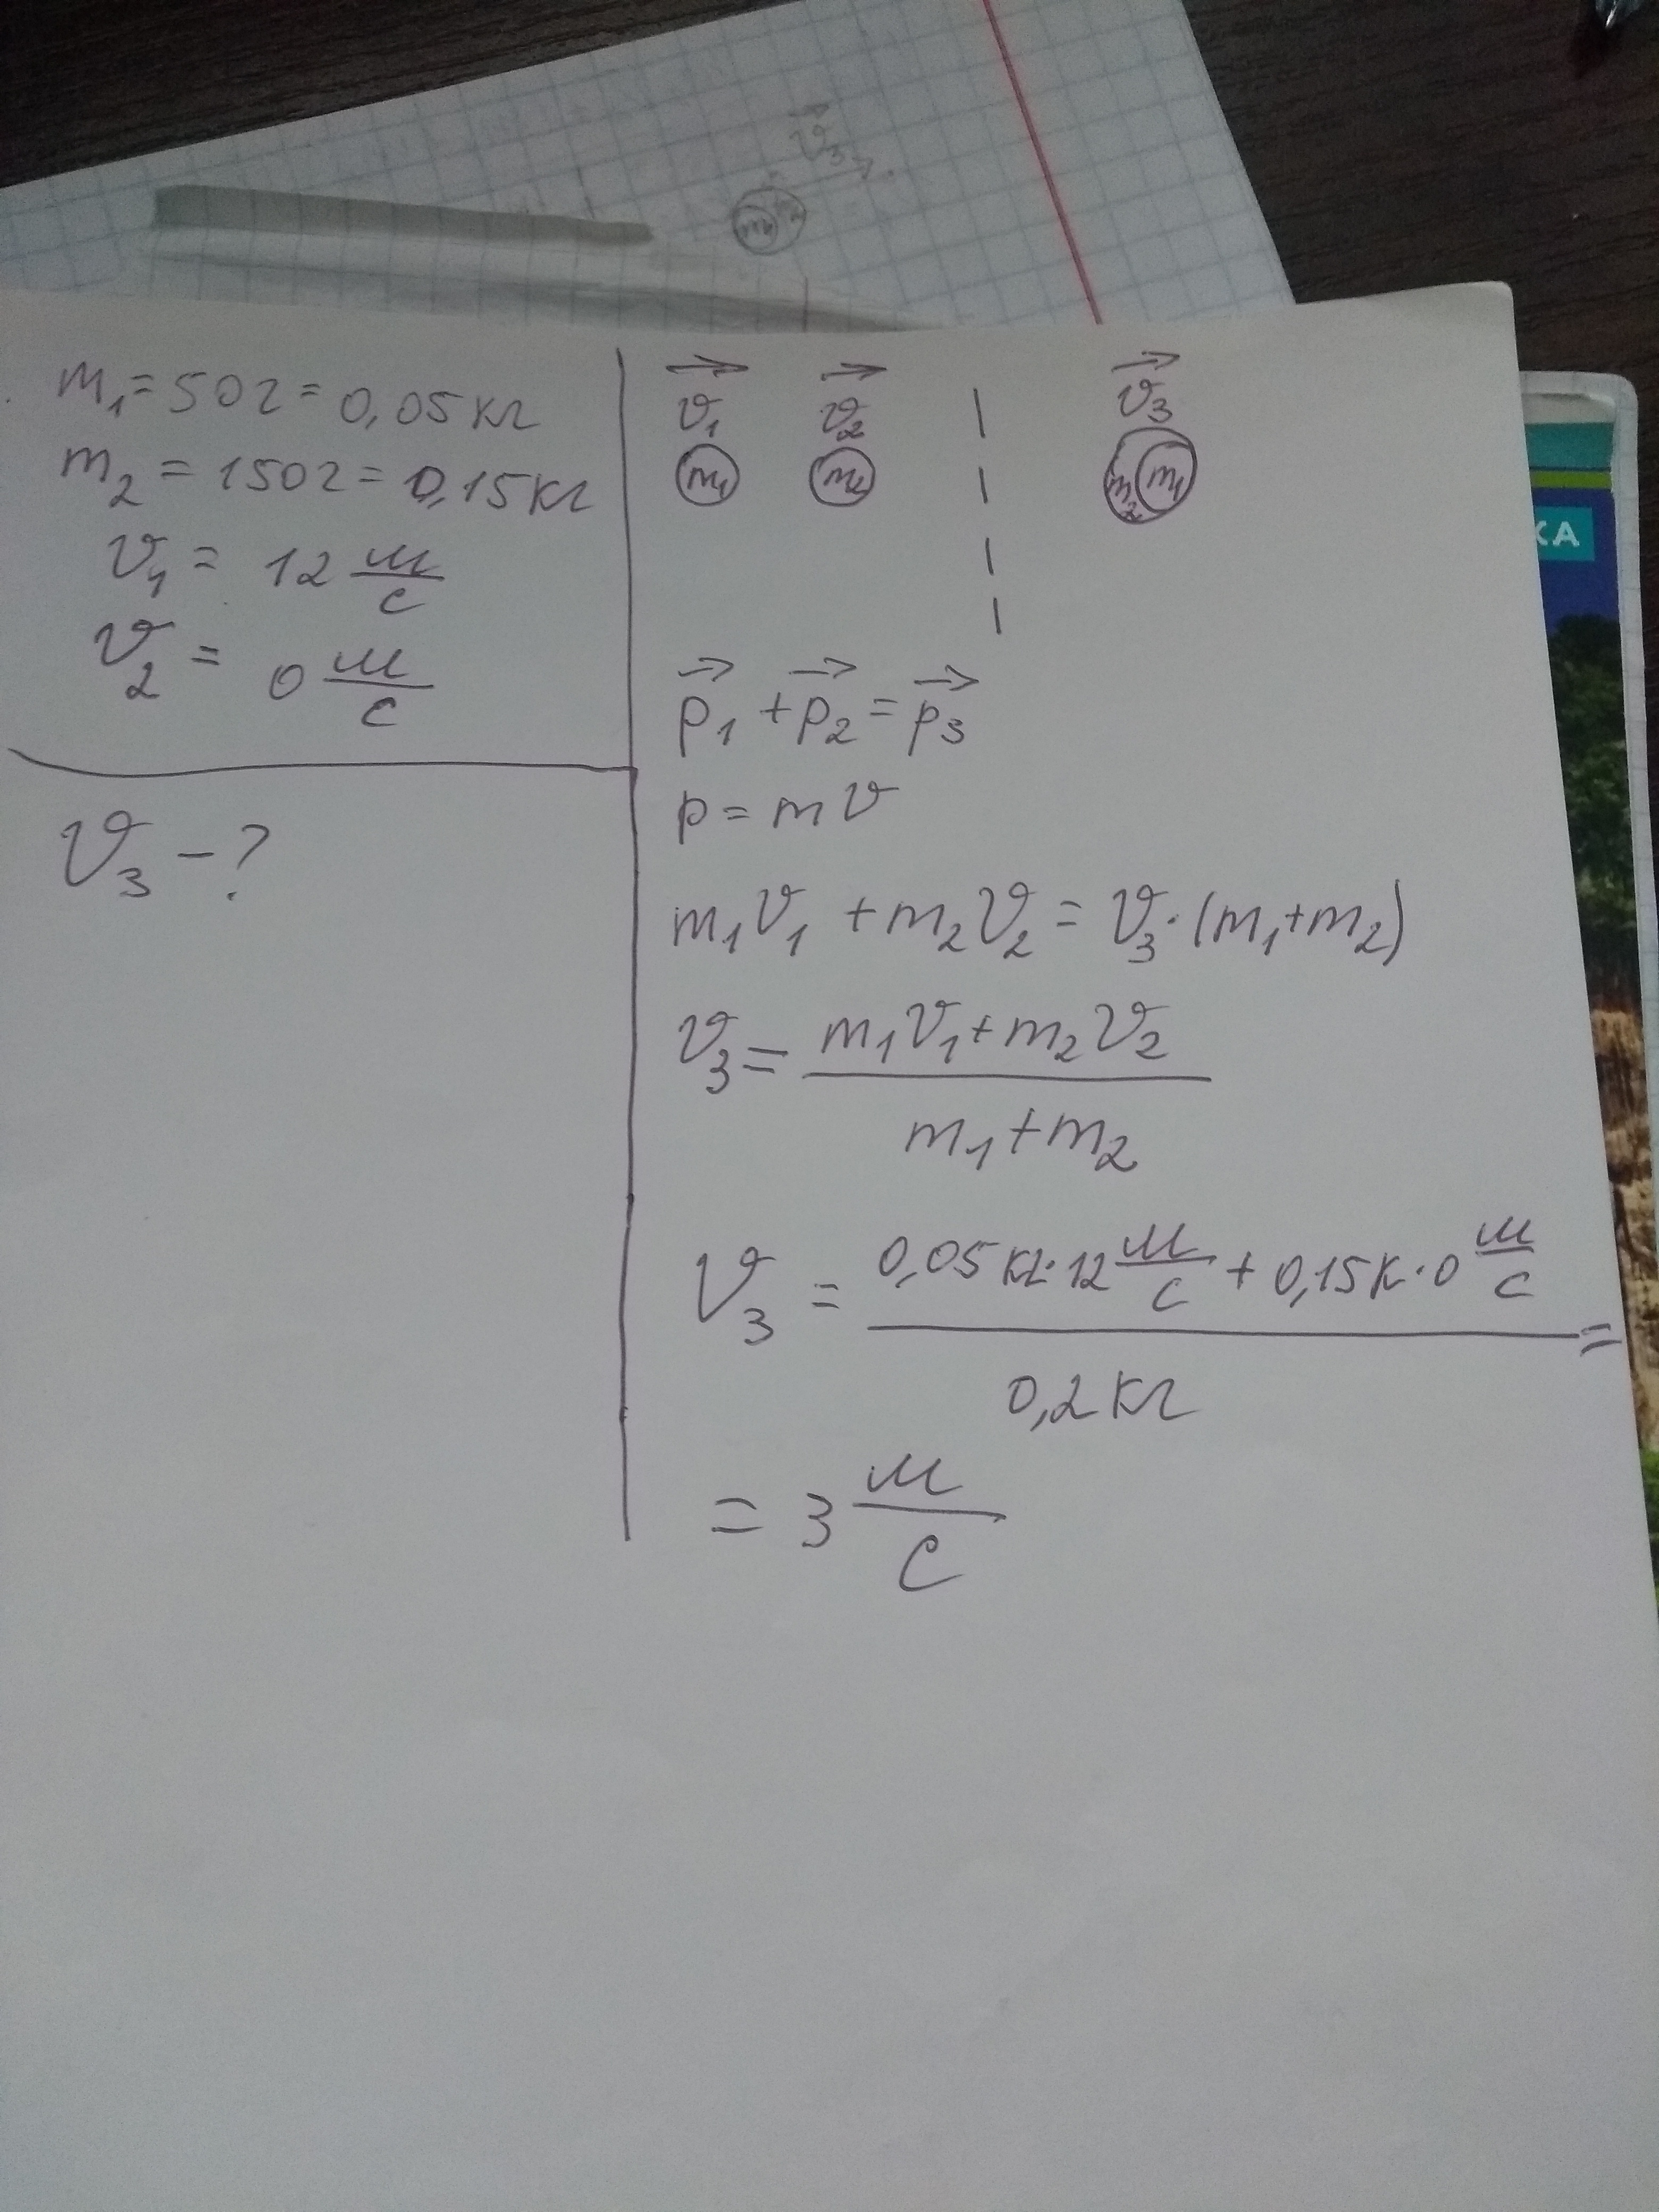 v₃
m₁ = 50г = 0,05 кг
m₂ = 150г = 0,15 кг
v₁ = 12 м/с
v₂ = 0 м/с
v₃ - ?
v₁ v₂ v₃
m₁ m₂ m₂ m₁
p₁ + p₂ = p₃
p = mv
m₁v₁ + m₂v₂ = v₃·(m₁+m₂)
v₃ = (m₁v₁ + m₂v₂) / (m₁ + m₂)
v₃ = (0,05 кг·12 м/с + 0,15 к·0 м/с) / 0,2 кг =
= 3 м/с
КА